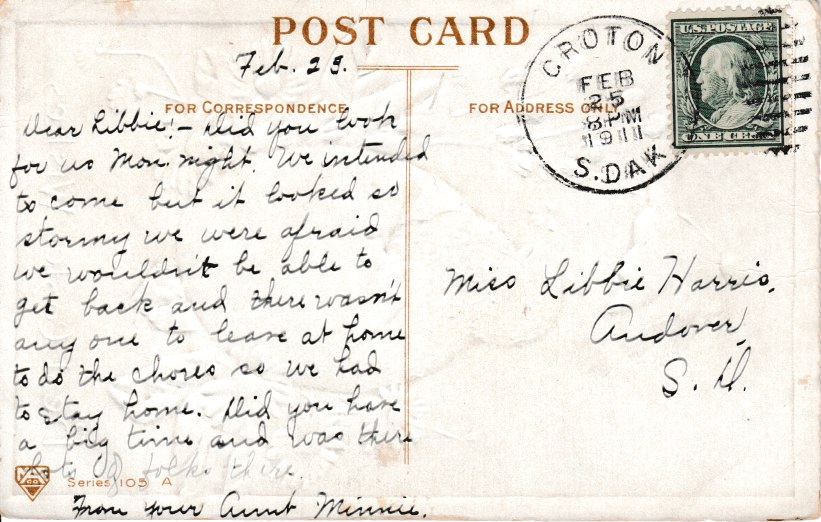 POST CARD
Feb. 23.
FOR CORRESPONDENCE
FOR ADDRESS ONLY
Dear Libbie! - Did you look
for us Mon. night. We intended
to come but it looked so
stormy we were afraid
we wouldn't be able to
get back and there wasn't
any one to leave at home
to do the chores so we had
to stay home. Did you have
a big time and was there
lots of folks there.
From your Aunt Minnie.
Series 105 A
CROTON
FEB
25
8PM
1911
S. DAK
U.S. POSTAGE
ONE CE
Miss Libbie Harris,
Andover,
S. D.